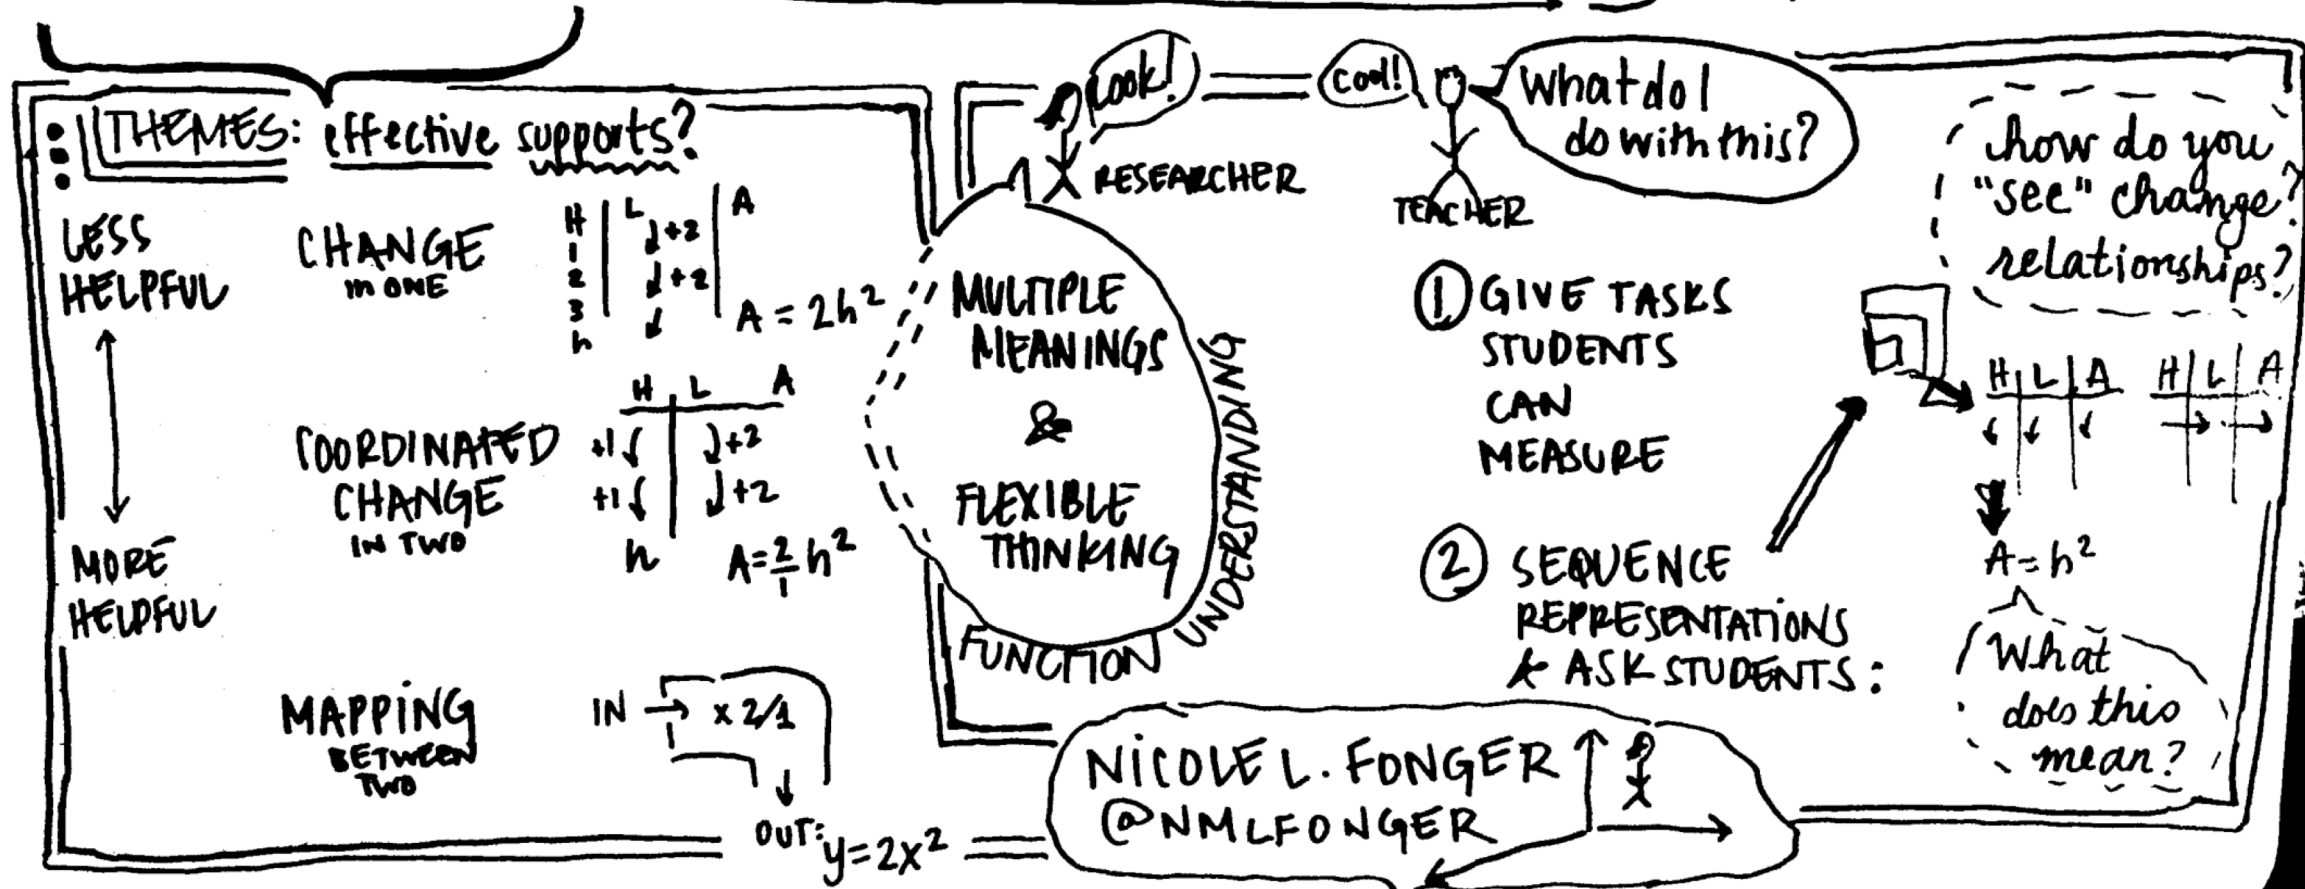 THEMES: effective supports?
LESS
HELPFUL
MORE
HELPFUL
CHANGE
in ONE
H L A
1 +2
2 +2
3
h
A = 2h²
COORDINATED
CHANGE
IN TWO
H L A
+1 +2
+1 +2
h A = 2/1 h²
MAPPING
BETWEEN
TWO
IN → x 2/1
OUT:
y = 2x²
MULTIPLE
MEANINGS
&
FLEXIBLE
THINKING
FUNCTION
UNDERSTANDING
Look!
RESEARCHER
Cool!
What do I
do with this?
TEACHER
① GIVE TASKS
STUDENTS
CAN
MEASURE
② SEQUENCE
REPRESENTATIONS
& ASK STUDENTS:
how do you
"see" change?
relationships?
H L A H L A
A = h²
What
does this
mean?
NICOLE L. FONGER
@NMLFONGER